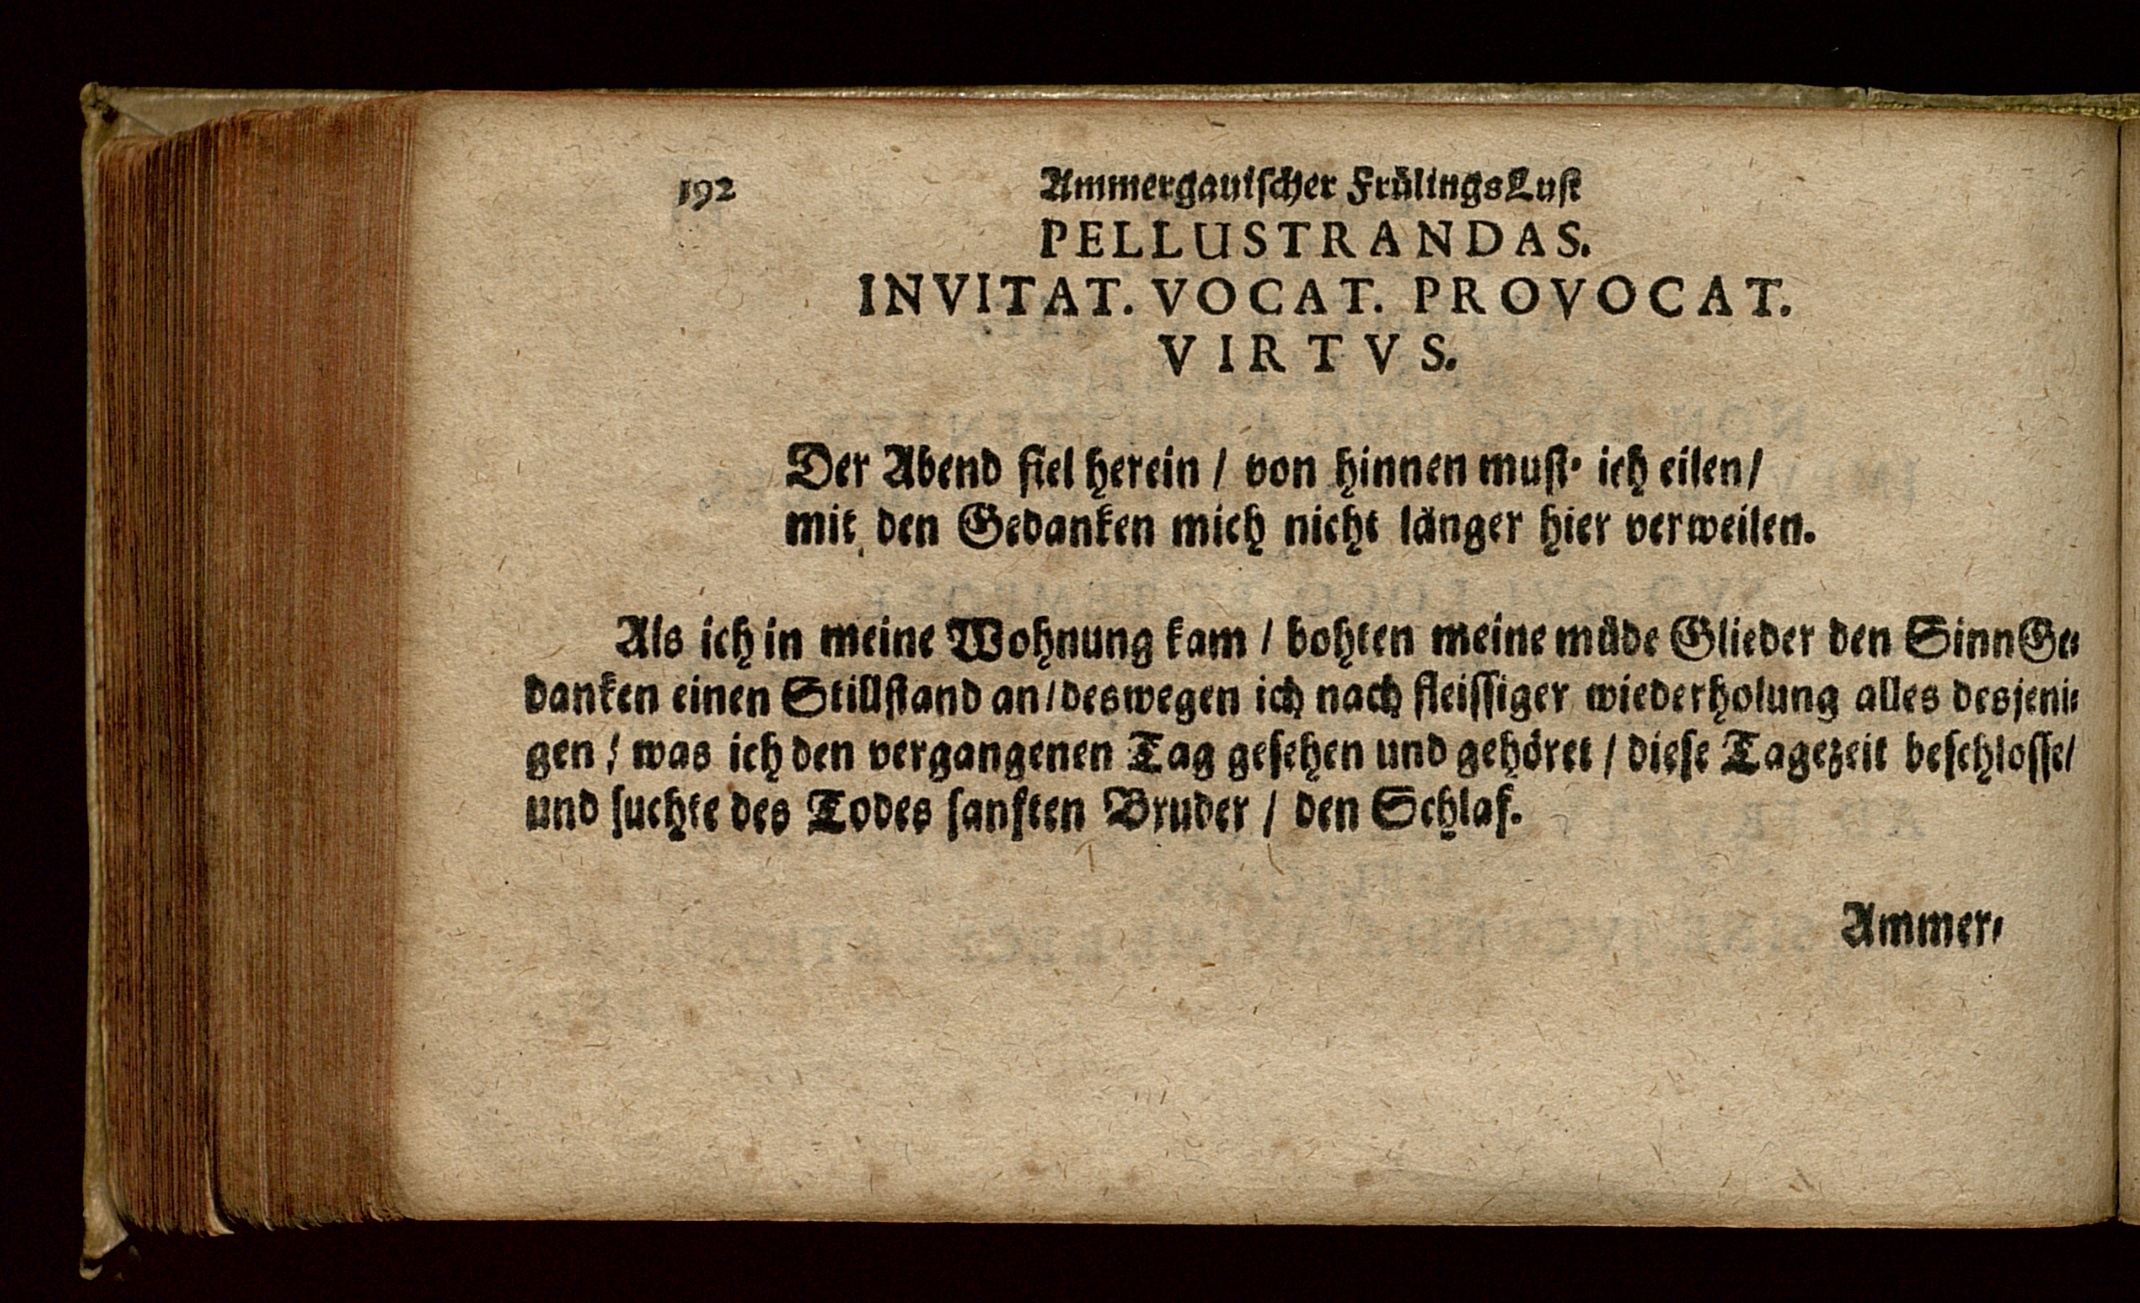 192 Ammergauischer FrülingsLust
PELLUSTRANDAS.
INVITAT. VOCAT. PROVOCAT.
VIRTVS.
Der Abend fiel herein / von hinnen must' ich eilen /
mit den Gedanken mich nicht länger hier verweilen.
Als ich in meine Wohnung kam / bohten meine müde Glieder den SinnGe-
danken einen Stillstand an / deswegen ich nach fleissiger wiederholung alles desjeni-
gen / was ich den vergangenen Tag gesehen und gehöret / diese Tagezeit beschlosse /
und suchte des Todes sanften Bruder / den Schlaf.
Ammer-